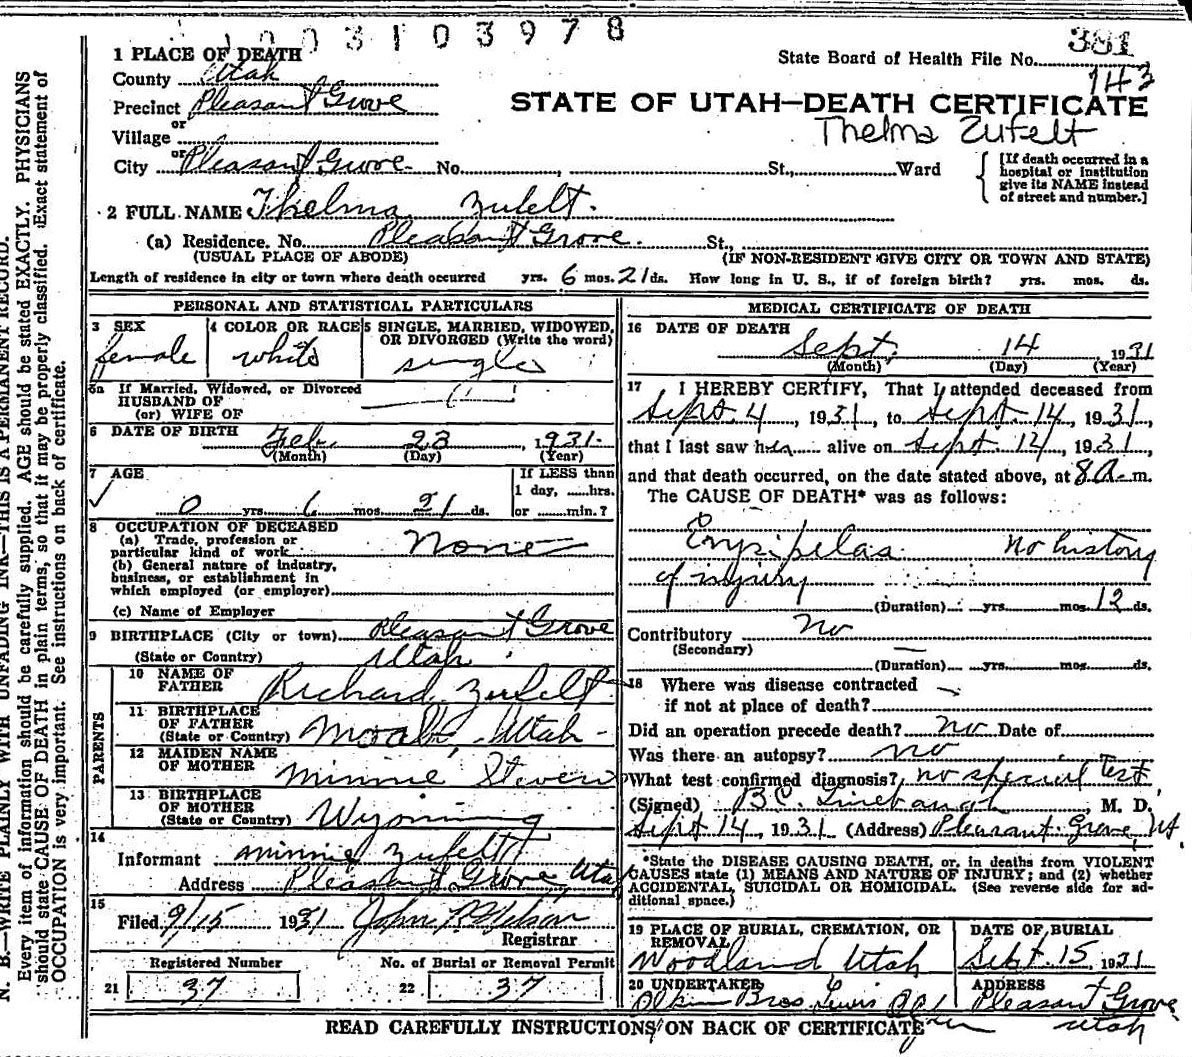 1003103978
1 PLACE OF DEATH
State Board of Health File No. 381
143
County Utah
Precinct Pleasant Grove
STATE OF UTAH—DEATH CERTIFICATE
or
Village
Thelma Zufelt
or
City Pleasant Grove No. , St., Ward
[If death occurred in a
hospital or institution
give its NAME instead
of street and number.]
2 FULL NAME Thelma Zufelt.
(a) Residence. No. Pleasant Grove. St.,
(USUAL PLACE OF ABODE) (IF NON-RESIDENT GIVE CITY OR TOWN AND STATE)
Length of residence in city or town where death occurred yrs. 6 mos. 21 ds. How long in U. S., if of foreign birth? yrs. mos. ds.
PERSONAL AND STATISTICAL PARTICULARS
3 SEX
female
4 COLOR OR RACE
white
5 SINGLE, MARRIED, WIDOWED,
OR DIVORCED (Write the word)
single
5a If Married, Widowed, or Divorced
HUSBAND OF
(or) WIFE OF
6 DATE OF BIRTH Feb. 23, 1931.
(Month) (Day) (Year)
7 AGE
0 yrs. 6 mos. 21 ds.
If LESS than
1 day, hrs.
or min.?
8 OCCUPATION OF DECEASED
(a) Trade, profession or
particular kind of work None
(b) General nature of industry,
business, or establishment in
which employed (or employer)
(c) Name of Employer
9 BIRTHPLACE (City or town) Pleasant Grove
(State or Country) Utah
PARENTS
10 NAME OF
FATHER Richard Zufelt
11 BIRTHPLACE
OF FATHER
(State or Country) Moab, Utah
12 MAIDEN NAME
OF MOTHER Minnie Stevens
13 BIRTHPLACE
OF MOTHER
(State or Country) Wyoming
14
Informant Minnie Zufelt
Address Pleasant Grove, Utah
15
Filed 9/15 1931 John R Wilson
Registrar
Registered Number No. of Burial or Removal Permit
21 37 22 37
MEDICAL CERTIFICATE OF DEATH
16 DATE OF DEATH
Sept. 14 1931
(Month) (Day) (Year)
17 I HEREBY CERTIFY, That I attended deceased from
Sept. 4, 1931, to Sept. 14, 1931,
that I last saw her alive on Sept. 14, 1931,
and that death occurred, on the date stated above, at 8 a. m.
The CAUSE OF DEATH* was as follows:
Erysipelas. No history
of injury
(Duration) yrs. mos. 12 ds.
Contributory No
(Secondary)
(Duration) yrs. mos. ds.
18 Where was disease contracted
if not at place of death?
Did an operation precede death? no Date of
Was there an autopsy? no
What test confirmed diagnosis? no special test
(Signed) B.C. Linebaugh, M. D.
Sept 14, 1931 (Address) Pleasant Grove, Ut.
*State the DISEASE CAUSING DEATH, or, in deaths from VIOLENT
CAUSES state (1) MEANS AND NATURE OF INJURY; and (2) whether
ACCIDENTAL, SUICIDAL OR HOMICIDAL. (See reverse side for ad-
ditional space.)
19 PLACE OF BURIAL, CREMATION, OR
REMOVAL
Woodland, Utah
DATE OF BURIAL
Sept. 15, 1931
20 UNDERTAKER
Bros
ADDRESS
Pleasant Grove
Utah
READ CAREFULLY INSTRUCTIONS ON BACK OF CERTIFICATE
N. B.—WRITE PLAINLY WITH UNFADING INK—THIS IS A PERMANENT RECORD.
Every item of information should be carefully supplied. AGE should be stated EXACTLY. PHYSICIANS
should state CAUSE OF DEATH in plain terms, so that it may be properly classified. Exact statement of
OCCUPATION is very important. See instructions on back of certificate.